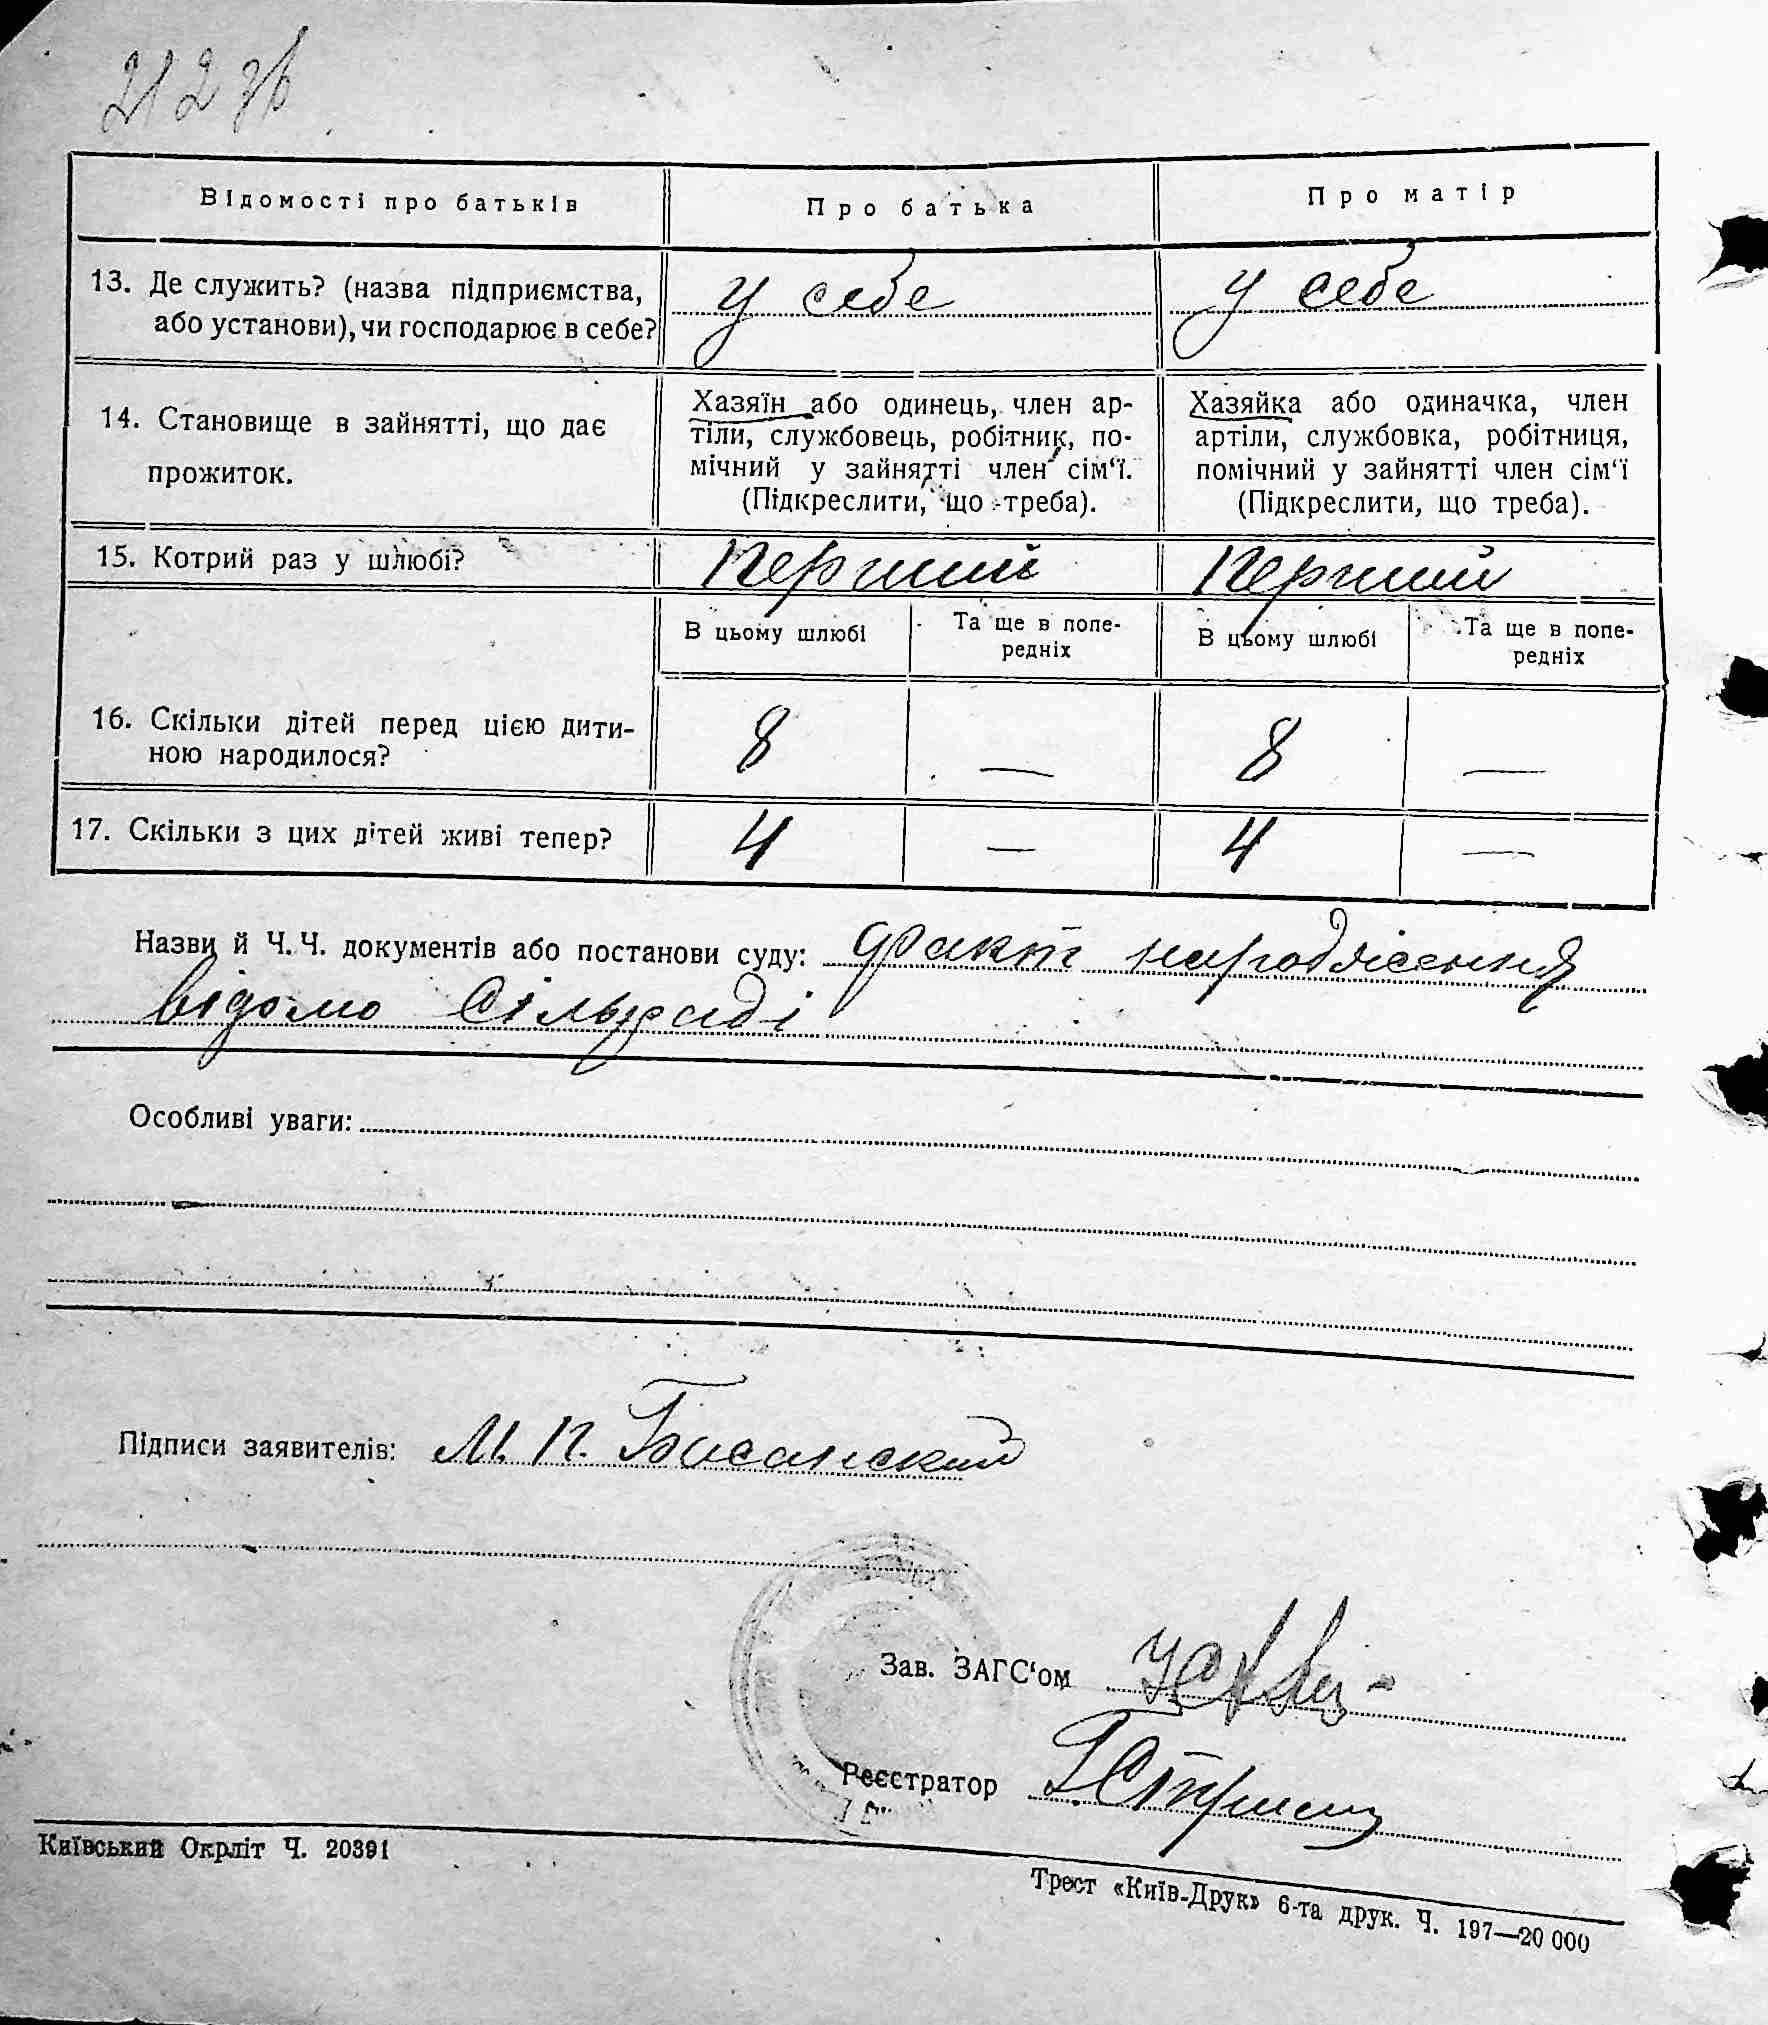 212 зв
Відомості про батьків
Про батька
Про матір
13. Де служить? (назва підприємства,
або установи), чи господарює в себе?
У себе
У себе
14. Становище в зайнятті, що дає
прожиток.
Хазяїн або одинець, член ар-
тіли, службовець, робітник, по-
мічний у зайнятті член сім‘ї.
(Підкреслити, що треба).
Хазяйка або одиначка, член
артіли, службовка, робітниця,
помічний у зайнятті член сім‘ї
(Підкреслити, що треба).
15. Котрий раз у шлюбі?
перший
перший
В цьому шлюбі
Та ще в попе-
редніх
В цьому шлюбі
Та ще в попе-
редніх
16. Скільки дітей перед цією дити-
ною народилося?
8
—
8
—
17. Скільки з цих дітей живі тепер?
4
—
4
—
Назви й Ч.Ч. документів або постанови суду: факт народження
відомо сільраді
Особливі уваги:
Підписи заявителів: М. П. Бисанский
Зав. ЗАГС‘ом
Реєстратор
Київський Окрліт Ч. 20391
Трест «Київ-Друк» 6-та друк. Ч. 197—20 000